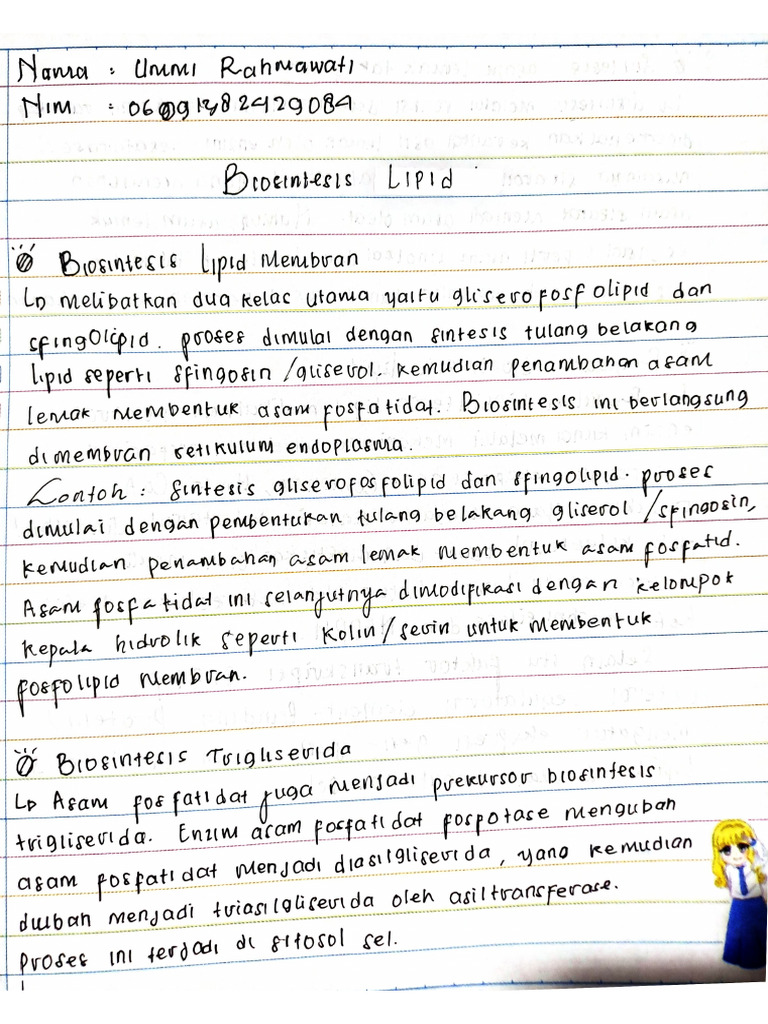 Nama : Ummi Rahmawati
NIM : 06091382429084
Biosintesis Lipid
Biosintesis Lipid Membran
↳ Melibatkan dua kelas utama yaitu gliserofosfolipid dan
sfingolipid. proses dimulai dengan sintesis tulang belakang
lipid seperti sfingosin/gliserol. kemudian penambahan asam
lemak membentuk asam fosfatidat. Biosintesis ini berlangsung
di membran retikulum endoplasma.
Contoh : sintesis gliserofosfolipid dan sfingolipid. proses
dimulai dengan pembentukan tulang belakang gliserol/sfingosin,
kemudian penambahan asam lemak membentuk asam fosfatid.
Asam fosfatidat ini selanjutnya dimodifikasi dengan kelompok
kepala hidrolik seperti kolin/serin untuk membentuk
fosfolipid membran.
Biosintesis Trigliserida
↳ Asam fosfatidat juga menjadi prekursor biosintesis
trigliserida. Enzim asam fosfatidat fospotase mengubah
asam fosfatidat menjadi diasilgliserida, yang kemudian
diubah menjadi triasilgliserida oleh asiltransferase.
Proses ini terjadi di sitosol sel.